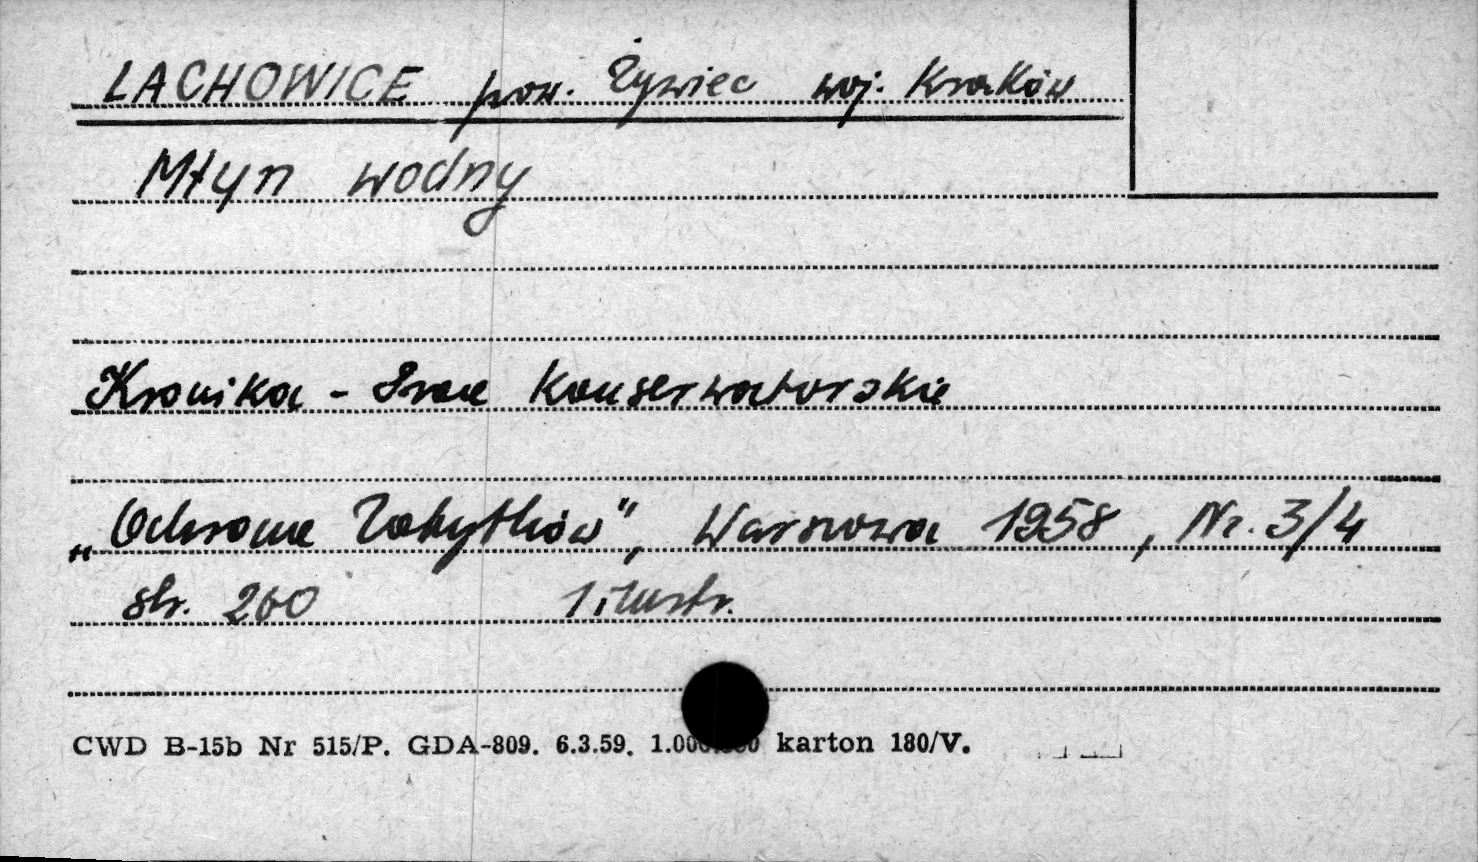 LACHOWICE pow. Żywiec woj. Kraków
Młyn wodny
Kronika - Prace Konserwatorskie
„Ochrona Zabytków”, Warszawa 1958, Nr. 3/4
str. 260 1 ilustr.
CWD B-15b Nr 515/P. GDA-809. 6.3.59. karton 180/V.